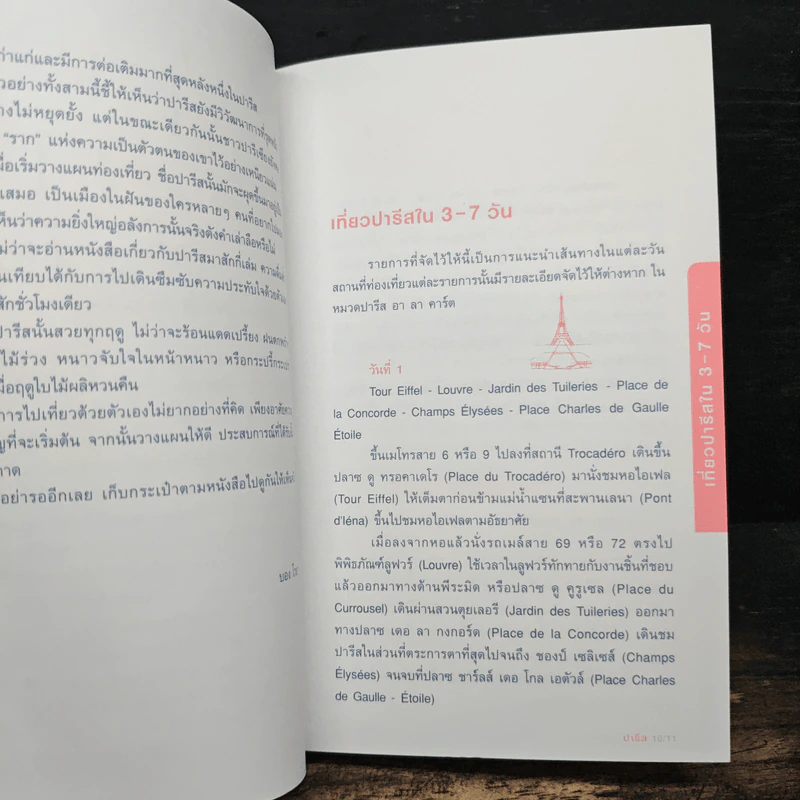 ก่าแก่และมีการต่อเติมมากที่สุดหลังหนึ่งในปารีส
วอย่างทั้งสามนี้ชี้ให้เห็นว่าปารีสยังมีวิวัฒนาการที่
างไม่หยุดยั้ง แต่ในขณะเดียวกันนั้นชาวปารีเซียง
"ราก" แห่งความเป็นตัวตนของเขาไว้อย่างเหนียวแน่น
มื่อเริ่มวางแผนท่องเที่ยว ชื่อปารีสนั้นมักจะผุดขึ้นมา
เสมอ เป็นเมืองในฝันของใครหลายๆ คนที่อยาก
ห็นว่าความยิ่งใหญ่อลังการนั้นจริงดังคำเล่าลือหรือไม่
ม่ว่าจะอ่านหนังสือเกี่ยวกับปารีสมาสักกี่เล่ม ความ
นเทียบได้กับการไปเดินซึมซับความประทับใจด้วย
สักชั่วโมงเดียว
ปารีสนั้นสวยทุกฤดู ไม่ว่าจะร้อนแดดเปรี้ยง ฝนตก
ไม้ร่วง หนาวจับใจในหน้าหนาว หรือกระปรี้กระเปร่า
มื่อฤดูใบไม้ผลิหวนคืน
การไปเที่ยวด้วยตัวเองไม่ยากอย่างที่คิด เพียงอาศัย
ญที่จะเริ่มต้น จากนั้นวางแผนให้ดี ประสบการณ์ที่ได้
าาด
อย่ารออีกเลย เก็บกระเป๋าตามหนังสือไปดูกันให้เห็น
มอง
เที่ยวปารีสใน 3-7 วัน
รายการที่จัดไว้ให้นี้เป็นการแนะนำเส้นทางในแต่ละวัน
สถานที่ท่องเที่ยวแต่ละรายการนั้นมีรายละเอียดจัดไว้ให้ต่างหาก ใน
หมวดปารีส อา ลา คาร์ต
วันที่ 1
Tour Eiffel - Louvre - Jardin des Tuileries - Place de
la Concorde - Champs Élysées - Place Charles de Gaulle
Étoile
ขึ้นเมโทรสาย 6 หรือ 9 ไปลงที่สถานี Trocadéro เดินขึ้น
ปลาซ ดู ทรอคาเดโร (Place du Trocadéro) มานั่งชมหอไอเฟล
(Tour Eiffel) ให้เต็มตาก่อนข้ามแม่น้ำแซนที่สะพานเลนา (Pont
d'Iéna) ขึ้นไปชมหอไอเฟลตามอัธยาศัย
เมื่อลงจากหอแล้วนั่งรถเมล์สาย 69 หรือ 72 ตรงไป
พิพิธภัณฑ์ลูฟวร์ (Louvre) ใช้เวลาในลูฟวร์ทักทายกับงานชิ้นที่ชอบ
แล้วออกมาทางด้านพีระมิด หรือปลาซ ดู คูรูเซล (Place du
Currousel) เดินผ่านสวนตุยเลอรี (Jardin des Tuileries) ออกมา
ทางปลาซ เดอ ลา กงกอร์ด (Place de la Concorde) เดินชม
ปารีสในส่วนที่ตระการตาที่สุดไปจนถึง ชองป์ เซลิเซส์ (Champs
Élysées) จนจบที่ปลาซ ชาร์ลส์ เดอ โกล เอตัวล์ (Place Charles
de Gaulle - Étoile)
เที่ยวปารีสใน 3-7 วัน
ปารีส 10/11